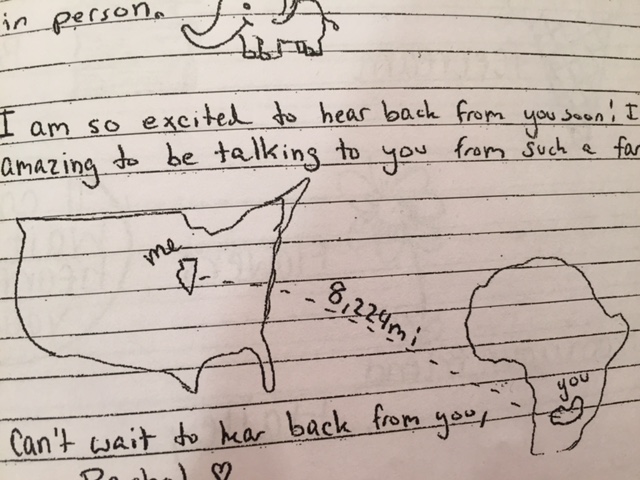 in person.
I am so excited to hear back from you soon! I
amazing to be talking to you from such a far
me
8,224mi
you
Can't wait to hear back from you,
Rachel ♡